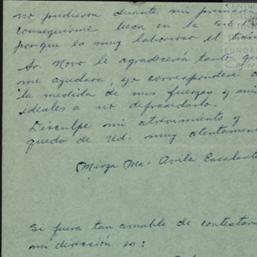 no pudieron durante mi
conseguirme beca en la
porque la muy laborioso el
Sr. Novo le agradecería tanto que
me ayudara, yo correspondería a
la medida de mis fuerzas y mis
ideales a no defraudarlo.
Disculpe mi atrevimiento y
quedo de Ud. muy atentamente
Mirza Ma. Avila Escalante
Si fuera tan amable de contestarme
mi dirección es: